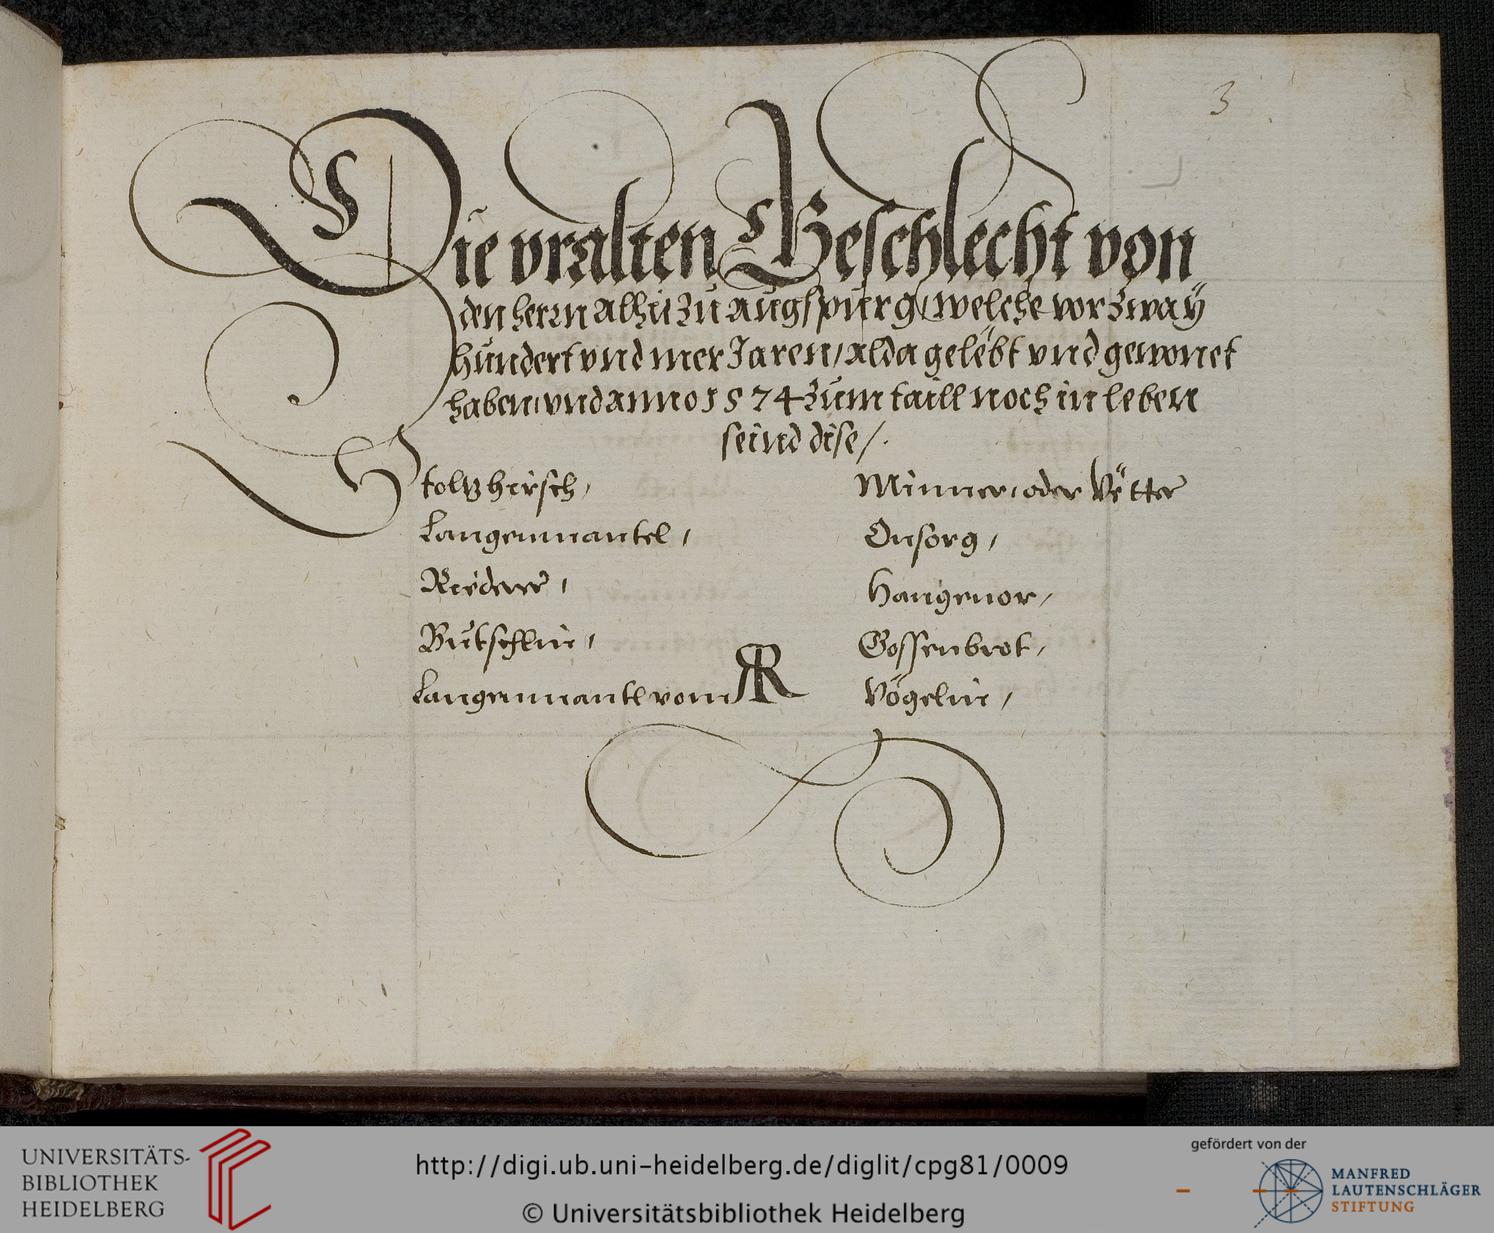 3
Die vralten Geschlecht von
den herrn alhie zu Augspurg, welche vor zway
hundert vnd mer Jaren, alda gelebt vnd gewonet
haben, vnd anno 1574 zum taill noch in leben
seind dise /.
Stoltzhirsch,
Langenmantel,
Riederer,
Bütschlin,
Langenmantl vom RR
Minner, oder Vetter
Onsorg,
Hangenor,
Gossenbrot,
Vögelin,
UNIVERSITÄTS-
BIBLIOTHEK
HEIDELBERG
http://digi.ub.uni-heidelberg.de/diglit/cpg81/0009
© Universitätsbibliothek Heidelberg
gefördert von der
MANFRED
LAUTENSCHLÄGER
STIFTUNG